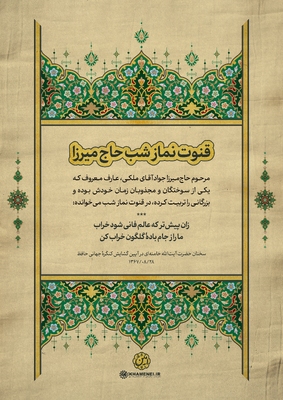 قنوت نماز شب حاج میرزا
مرحوم حاج میرزا جواد آقای ملکی، عارف معروف که
یکی از سوختگان و مجذوبان زمان خودش بوده و
بزرگانی را تربیت کرده، در قنوت نماز شب می‌خوانده:
***
زان پیش‌تر که عالم فانی شود خراب
ما را ز جام بادهٔ گلگون خراب کن
سخنان حضرت آیت‌الله خامنه‌ای در آیین گشایش کنگرهٔ جهانی حافظ
۱۳۶۷/۰۸/۲۸
KHAMENEI.IR